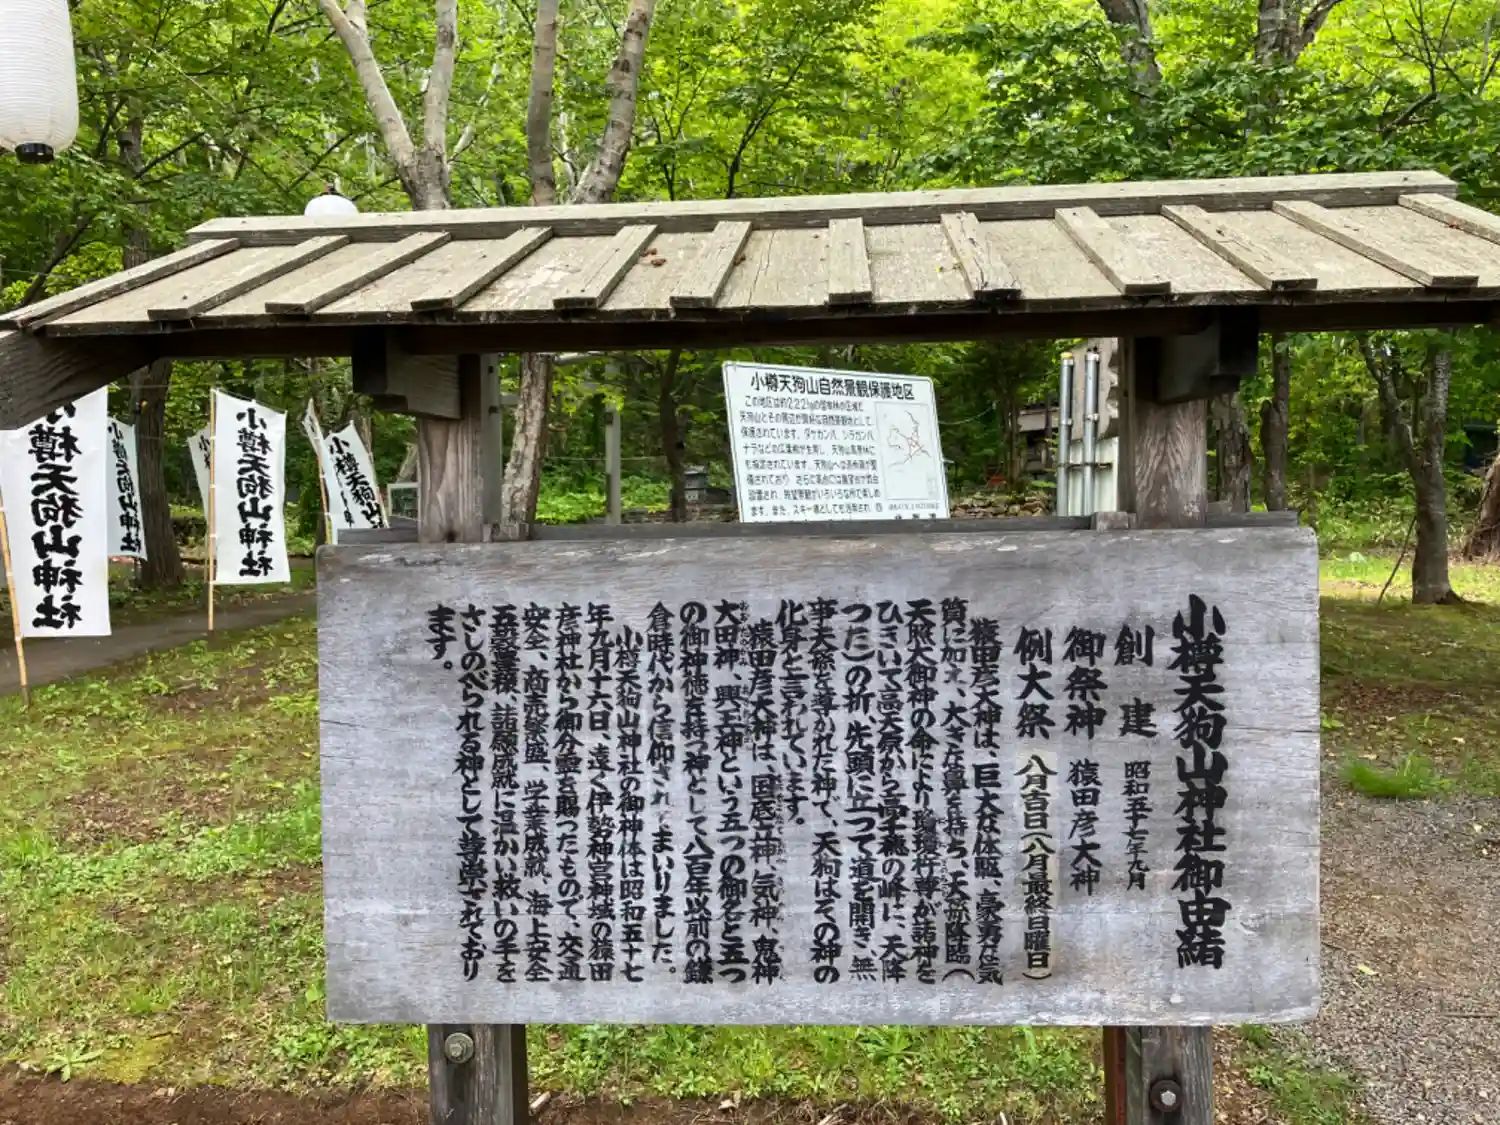 小樽天狗山神社御由緒
創建 昭和五十七年九月
御祭神 猿田彦大神
例大祭 八月吉日(八月最終日曜日)
猿田彦大神は、巨大な体駆、豪勇な気
質に加え、大きな鼻を持ち、天孫降臨(
天照大御神の命により瓊瓊杵尊が諸神を
ひきいて高天原から高千穂の峰に、天降
つた)の折、先頭に立つて道を開き、無
事天孫を導かれた神で、天狗はその神の
化身と言われています。
猿田彦大神は、国底立神、気神、鬼神
大田神、興玉神という五つの御名と五つ
の御神徳を持つ神として八百年以前の鎌
倉時代から信仰されてまいりました。
小樽天狗山神社の御神体は昭和五十七
年九月十六日、遠く伊勢神宮神域の猿田
彦神社から御分霊を賜つたもので、交通
安全、商売繁盛、学業成就、海上安全
五穀豊穣、諸願成就に温かい救いの手を
さしのべられる神として尊崇されており
ます。
小樽天狗山自然景観保護地区
この地区は約222haの
天狗山とその周辺が良好な自然景観地として、
保護されています。ダケカンバ、シラカンバ、
ナラなどの広葉樹が生育し、
小樽天狗山神社
小樽天狗山神社
小樽天狗山神社
小樽天狗山